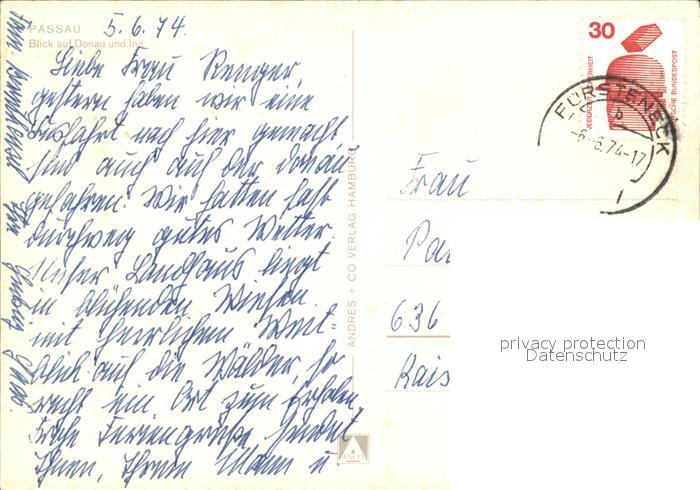 PASSAU
Blick auf Donau und Inn
5.6.74.
Liebe Frau Renger,
gestern haben wir eine
Busfahrt nach hier gemacht
sind auch auf der Donau
gefahren. Wir hatten fast
durchweg gutes Wetter.
Unser Landhaus liegt
in blühenden Wiesen
mit herrlichem Weit-
blick auf die Wälder, so
recht ein Ort zum Erholen.
Frohe Feriengrüße sendet
Ihnen, Ihrem Mann u.
Ihre
ANDRES + CO VERLAG HAMBURG
ANCO
30
JEDERZEIT SICHERHEIT
DEUTSCHE BUNDESPOST
FÜRSTENECK
b
-6.-6.74-17
Frau
Pa
636
Kais
privacy protection
Datenschutz